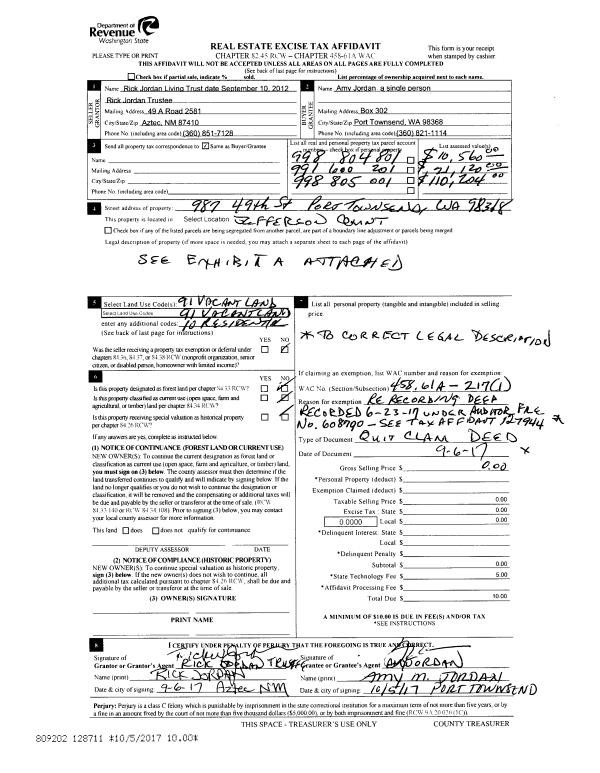 Department of
Revenue
Washington State
REAL ESTATE EXCISE TAX AFFIDAVIT
This form is your receipt
PLEASE TYPE OR PRINT
CHAPTER 82.45 RCW – CHAPTER 458-61A WAC
when stamped by cashier.
THIS AFFIDAVIT WILL NOT BE ACCEPTED UNLESS ALL AREAS ON ALL PAGES ARE FULLY COMPLETED
(See back of last page for instructions)
Check box if partial sale, indicate % sold. List percentage of ownership acquired next to each name.
1 Name Rick Jordan Living Trust date September 10, 2012
Rick Jordan Trustee
SELLER GRANTOR
Mailing Address 49 A Road 2581
City/State/Zip Aztec, NM 87410
Phone No. (including area code) (360) 851-7128
2 Name Amy Jordan a single person
BUYER GRANTEE
Mailing Address Box 302
City/State/Zip Port Townsend, WA 98368
Phone No. (including area code) (360) 821-1114
3 Send all property tax correspondence to: Same as Buyer/Grantee
Name
Mailing Address
City/State/Zip
Phone No. (including area code)
List all real and personal property tax parcel account
numbers – check box if personal property
List assessed value(s)
998 804 801 $10,560 00
991 600 201 $21,120 00
998 805 001 $110,204 00
4 Street address of property: 987 49th St PORT TOWNSEND WA 98368
This property is located in Select Location JEFFERSON COUNT
Check box if any of the listed parcels are being segregated from another parcel, are part of a boundary line adjustment or parcels being merged.
Legal description of property (if more space is needed, you may attach a separate sheet to each page of the affidavit)
SEE EXHIBIT A ATTACHED
5 Select Land Use Code(s): 91 VACANT LAND
Select Land Use Codes 91 VACANT LAND
enter any additional codes: 10 RESIDENTIAL
(See back of last page for instructions)
YES NO
Was the seller receiving a property tax exemption or deferral under
chapters 84.36, 84.37, or 84.38 RCW (nonprofit organization, senior
citizen, or disabled person, homeowner with limited income)?
6
YES NO
Is this property designated as forest land per chapter 84.33 RCW?
Is this property classified as current use (open space, farm and
agricultural, or timber) land per chapter 84.34 RCW?
Is this property receiving special valuation as historical property
per chapter 84.26 RCW?
If any answers are yes, complete as instructed below.
(1) NOTICE OF CONTINUANCE (FOREST LAND OR CURRENT USE)
NEW OWNER(S): To continue the current designation as forest land or
classification as current use (open space, farm and agriculture, or timber) land,
you must sign on (3) below. The county assessor must then determine if the
land transferred continues to qualify and will indicate by signing below. If the
land no longer qualifies or you do not wish to continue the designation or
classification, it will be removed and the compensating or additional taxes will
be due and payable by the seller or transferor at the time of sale. (RCW
84.33.140 or RCW 84.34.108). Prior to signing (3) below, you may contact
your local county assessor for more information.
This land does does not qualify for continuance.
DEPUTY ASSESSOR DATE
(2) NOTICE OF COMPLIANCE (HISTORIC PROPERTY)
NEW OWNER(S): To continue special valuation as historic property,
sign (3) below. If the new owner(s) does not wish to continue, all
additional tax calculated pursuant to chapter 84.26 RCW, shall be due and
payable by the seller or transferor at the time of sale.
(3) OWNER(S) SIGNATURE
PRINT NAME
7 List all personal property (tangible and intangible) included in selling
price.
* TO CORRECT LEGAL DESCRIPTION
If claiming an exemption, list WAC number and reason for exemption:
WAC No. (Section/Subsection) 458.61A-217(1)
Reason for exemption RE RECORDING DEED
RECORDED 6-23-17 UNDER AUDITOR FILE
No. 608790 – SEE TAX AFFIDAVIT 127944 *
Type of Document QUIT CLAIM DEED
Date of Document 9-6-17 x
Gross Selling Price $ 0.00
*Personal Property (deduct) $
Exemption Claimed (deduct) $
Taxable Selling Price $ 0.00
Excise Tax : State $ 0.00
0.0000 Local $ 0.00
*Delinquent Interest: State $
Local $
*Delinquent Penalty $
Subtotal $ 0.00
*State Technology Fee $ 5.00
*Affidavit Processing Fee $
Total Due $ 10.00
A MINIMUM OF $10.00 IS DUE IN FEE(S) AND/OR TAX
*SEE INSTRUCTIONS
8 I CERTIFY UNDER PENALTY OF PERJURY THAT THE FOREGOING IS TRUE AND CORRECT.
Signature of
Grantor or Grantor's Agent RICK JORDAN TRUST
Name (print) RICK JORDAN
Date & city of signing: 9-6-17 Aztec NM
Signature of
Grantee or Grantee's Agent AM JORDAN
Name (print) Amy M. JORDAN
Date & city of signing: 10/5/17 PORT TOWNSEND
Perjury: Perjury is a class C felony which is punishable by imprisonment in the state correctional institution for a maximum term of not more than five years, or by
a fine in an amount fixed by the court of not more than five thousand dollars ($5,000.00), or by both imprisonment and fine (RCW 9A.20.020 (1C)).
THIS SPACE - TREASURER'S USE ONLY COUNTY TREASURER
809202 128711 *10/5/2017 10.00*